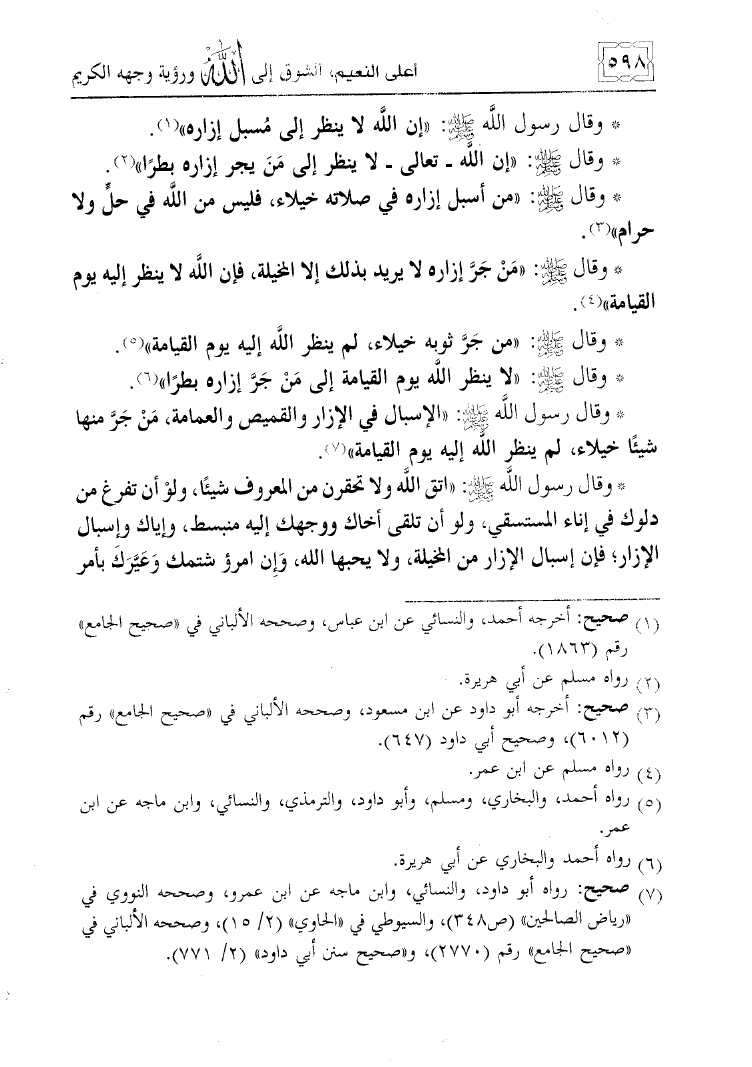 ٥٩٨
أعلى النعيم، الشوق إلى الله ورؤية وجهه الكريم
* وقال رسول اللَّه ﷺ: «إن اللَّه لا ينظر إلى مُسبل إزاره»(١).
* وقال ﷺ: «إن اللَّه ـ تعالى ـ لا ينظر إلى مَنَ يجر إزاره بطرًا»(٢).
* وقال ﷺ: «من أسبل إزاره في صلاته خيلاء، فليس من اللَّه في حلٍّ ولا
حرام»(٣).
* وقال ﷺ: «مَنْ جَرَّ إزاره لا يريد بذلك إلا المخيلة، فإن اللَّه لا ينظر إليه يوم
القيامة»(٤).
* وقال ﷺ: «من جَرَّ ثوبه خيلاء، لم ينظر اللَّه إليه يوم القيامة»(٥).
* وقال ﷺ: «لا ينظر اللَّه يوم القيامة إلى مَنْ جَرَّ إزاره بطرًا»(٦).
* وقال رسول اللَّه ﷺ: «الإسبال في الإزار والقميص والعمامة، مَنْ جَرَّ منها
شيئًا خيلاء، لم ينظر اللَّه إليه يوم القيامة»(٧).
* وقال رسول اللَّه ﷺ: «اتق اللَّه ولا تحقرن من المعروف شيئًا، ولوْ أن تفرغ من
دلوك في إناء المستسقي، ولو أن تلقى أخاك ووجهك إليه منبسط، وإياك وإسبال
الإزار؛ فإن إسبال الإزار من المخيلة، ولا يحبها الله، وَإِن امرؤ شتمك وَعَيَّرَكَ بأمر
(١) صحيح: أخرجه أحمد، والنسائي عن ابن عباس، وصححه الألباني في «صحيح الجامع»
رقم (١٨٦٣).
(٢) رواه مسلم عن أبي هريرة.
(٣) صحيح: أخرجه أبو داود عن ابن مسعود، وصححه الألباني في «صحيح الجامع» رقم
(٦٠١٢)، وصحيح أبي داود (٦٤٧).
(٤) رواه مسلم عن ابن عمر.
(٥) رواه أحمد، والبخاري، ومسلم، وأبو داود، والترمذي، والنسائي، وابن ماجه عن ابن
عمر.
(٦) رواه أحمد والبخاري عن أبي هريرة.
(٧) صحيح: رواه أبو داود، والنسائي، وابن ماجه عن ابن عمرو، وصححه النووي في
«رياض الصالحين» (ص٣٤٨)، والسيوطي في «الحاوي» (٢/ ١٥)، وصححه الألباني في
«صحيح الجامع» رقم (٢٧٧٠)، و«صحيح سنن أبي داود» (٢/ ٧٧١).